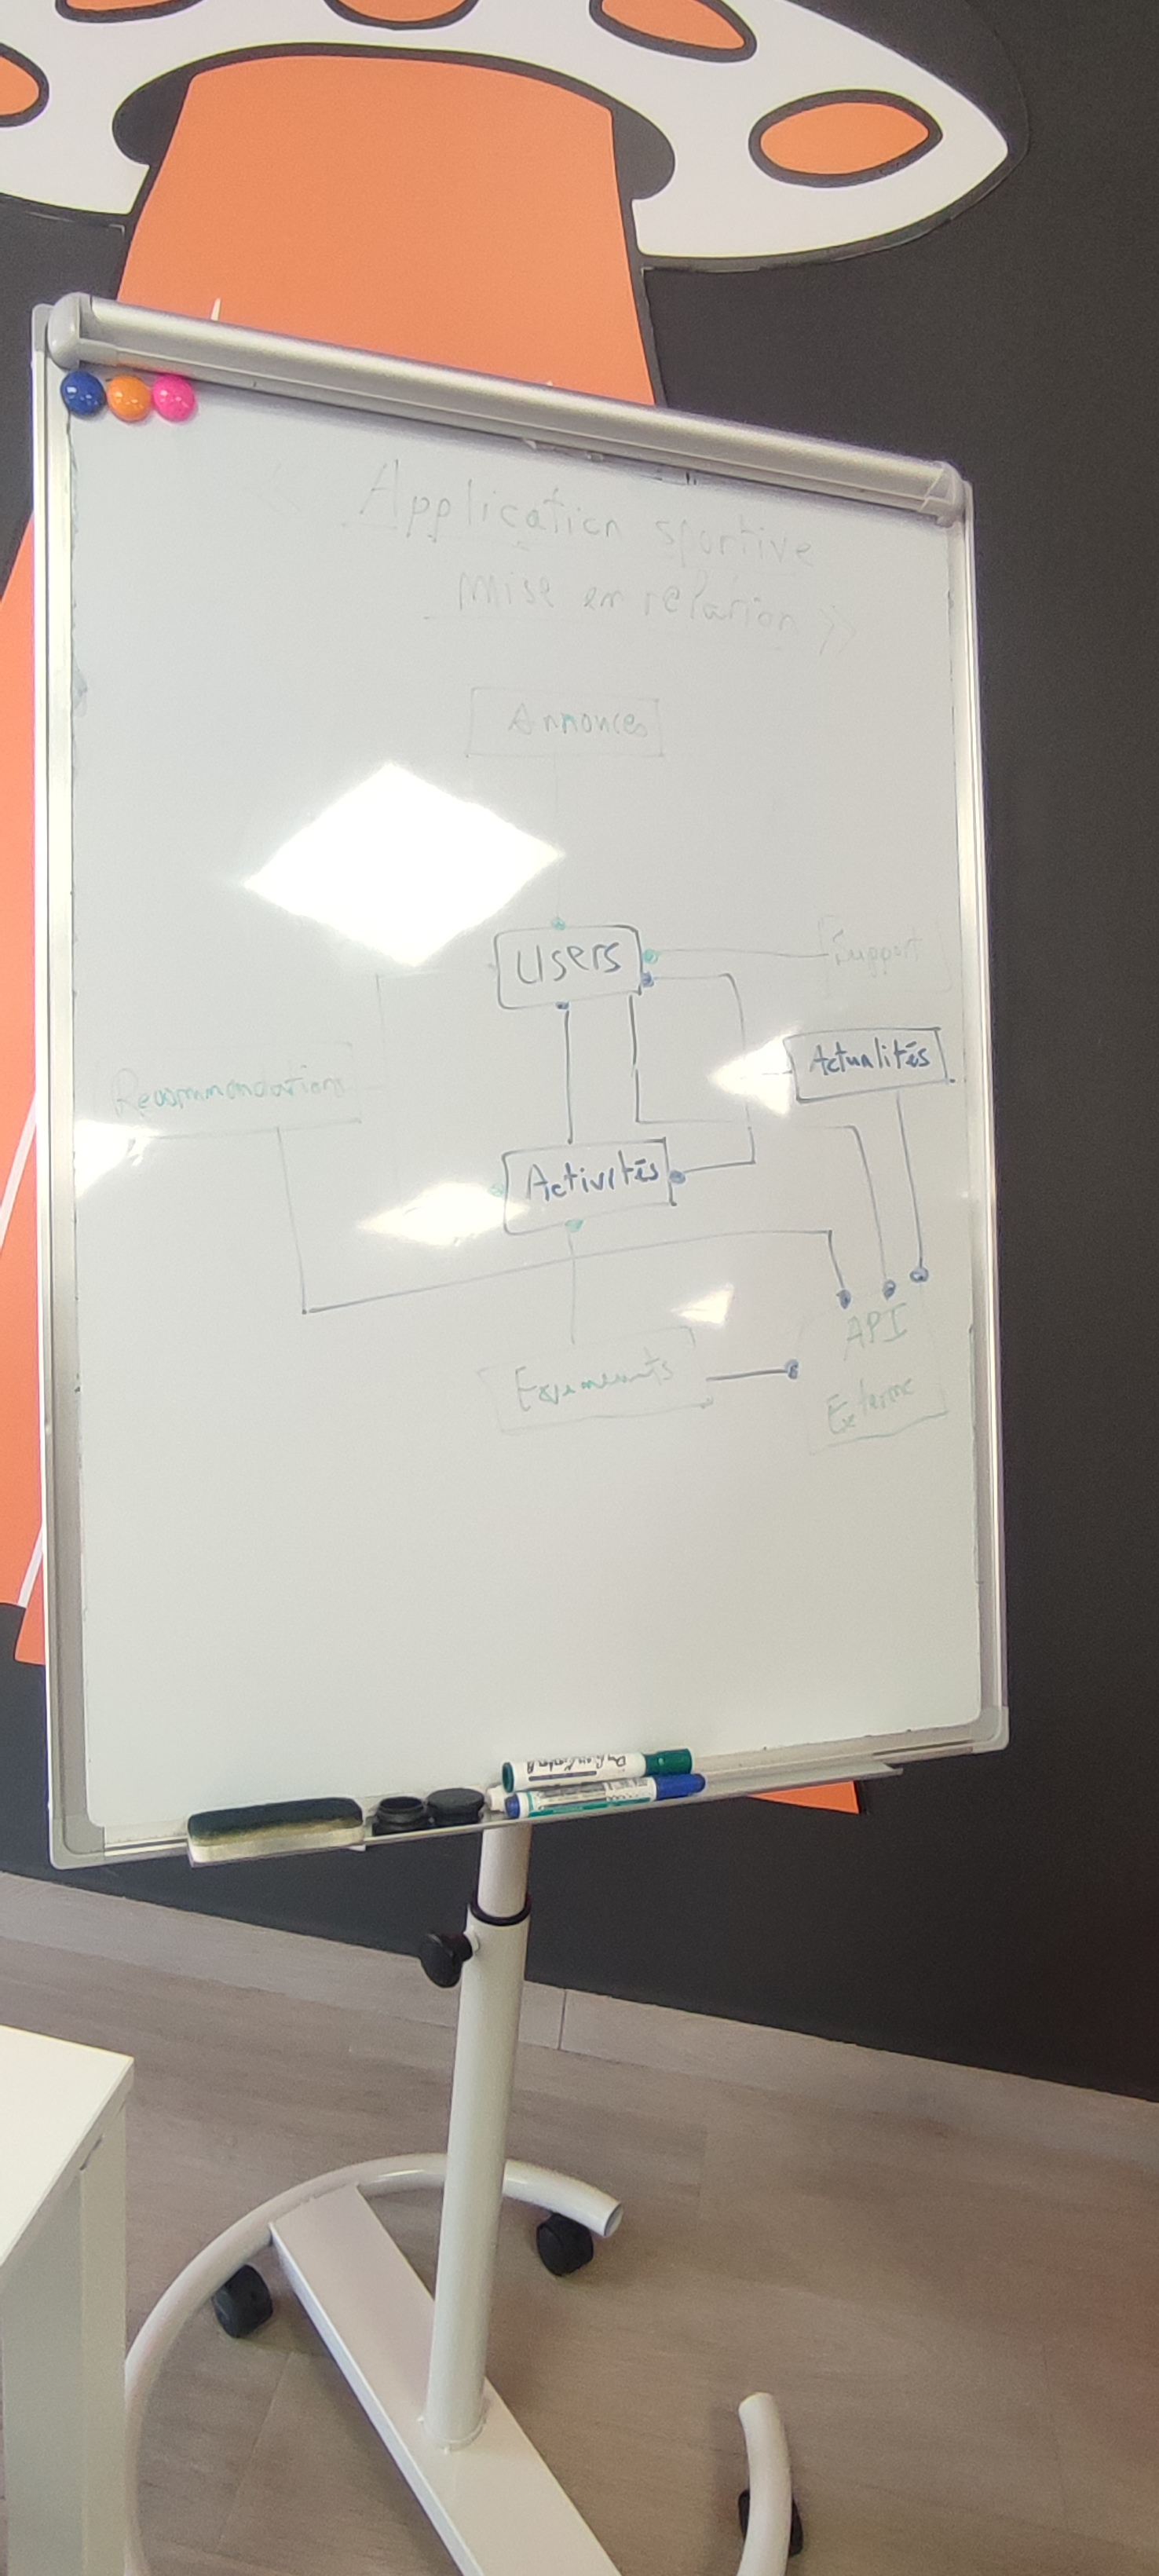 « Application sportive
mise en relation »
Annonces
Users
Support
Actualités
Recommandations
Activités
API
Externe